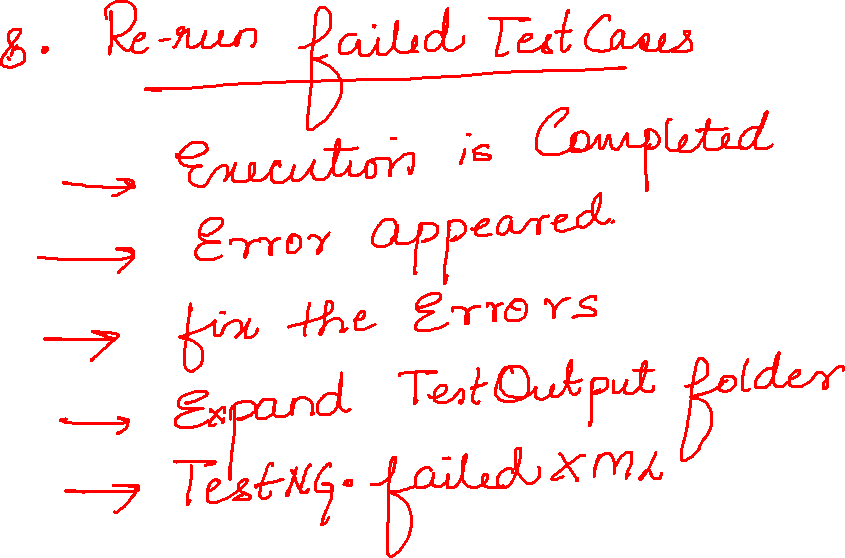 8. Re-run failed Test Cases
→ Execution is Completed
→ Error appeared.
→ fix the Errors
→ Expand TestOutput folder
→ TestNG. failed XML